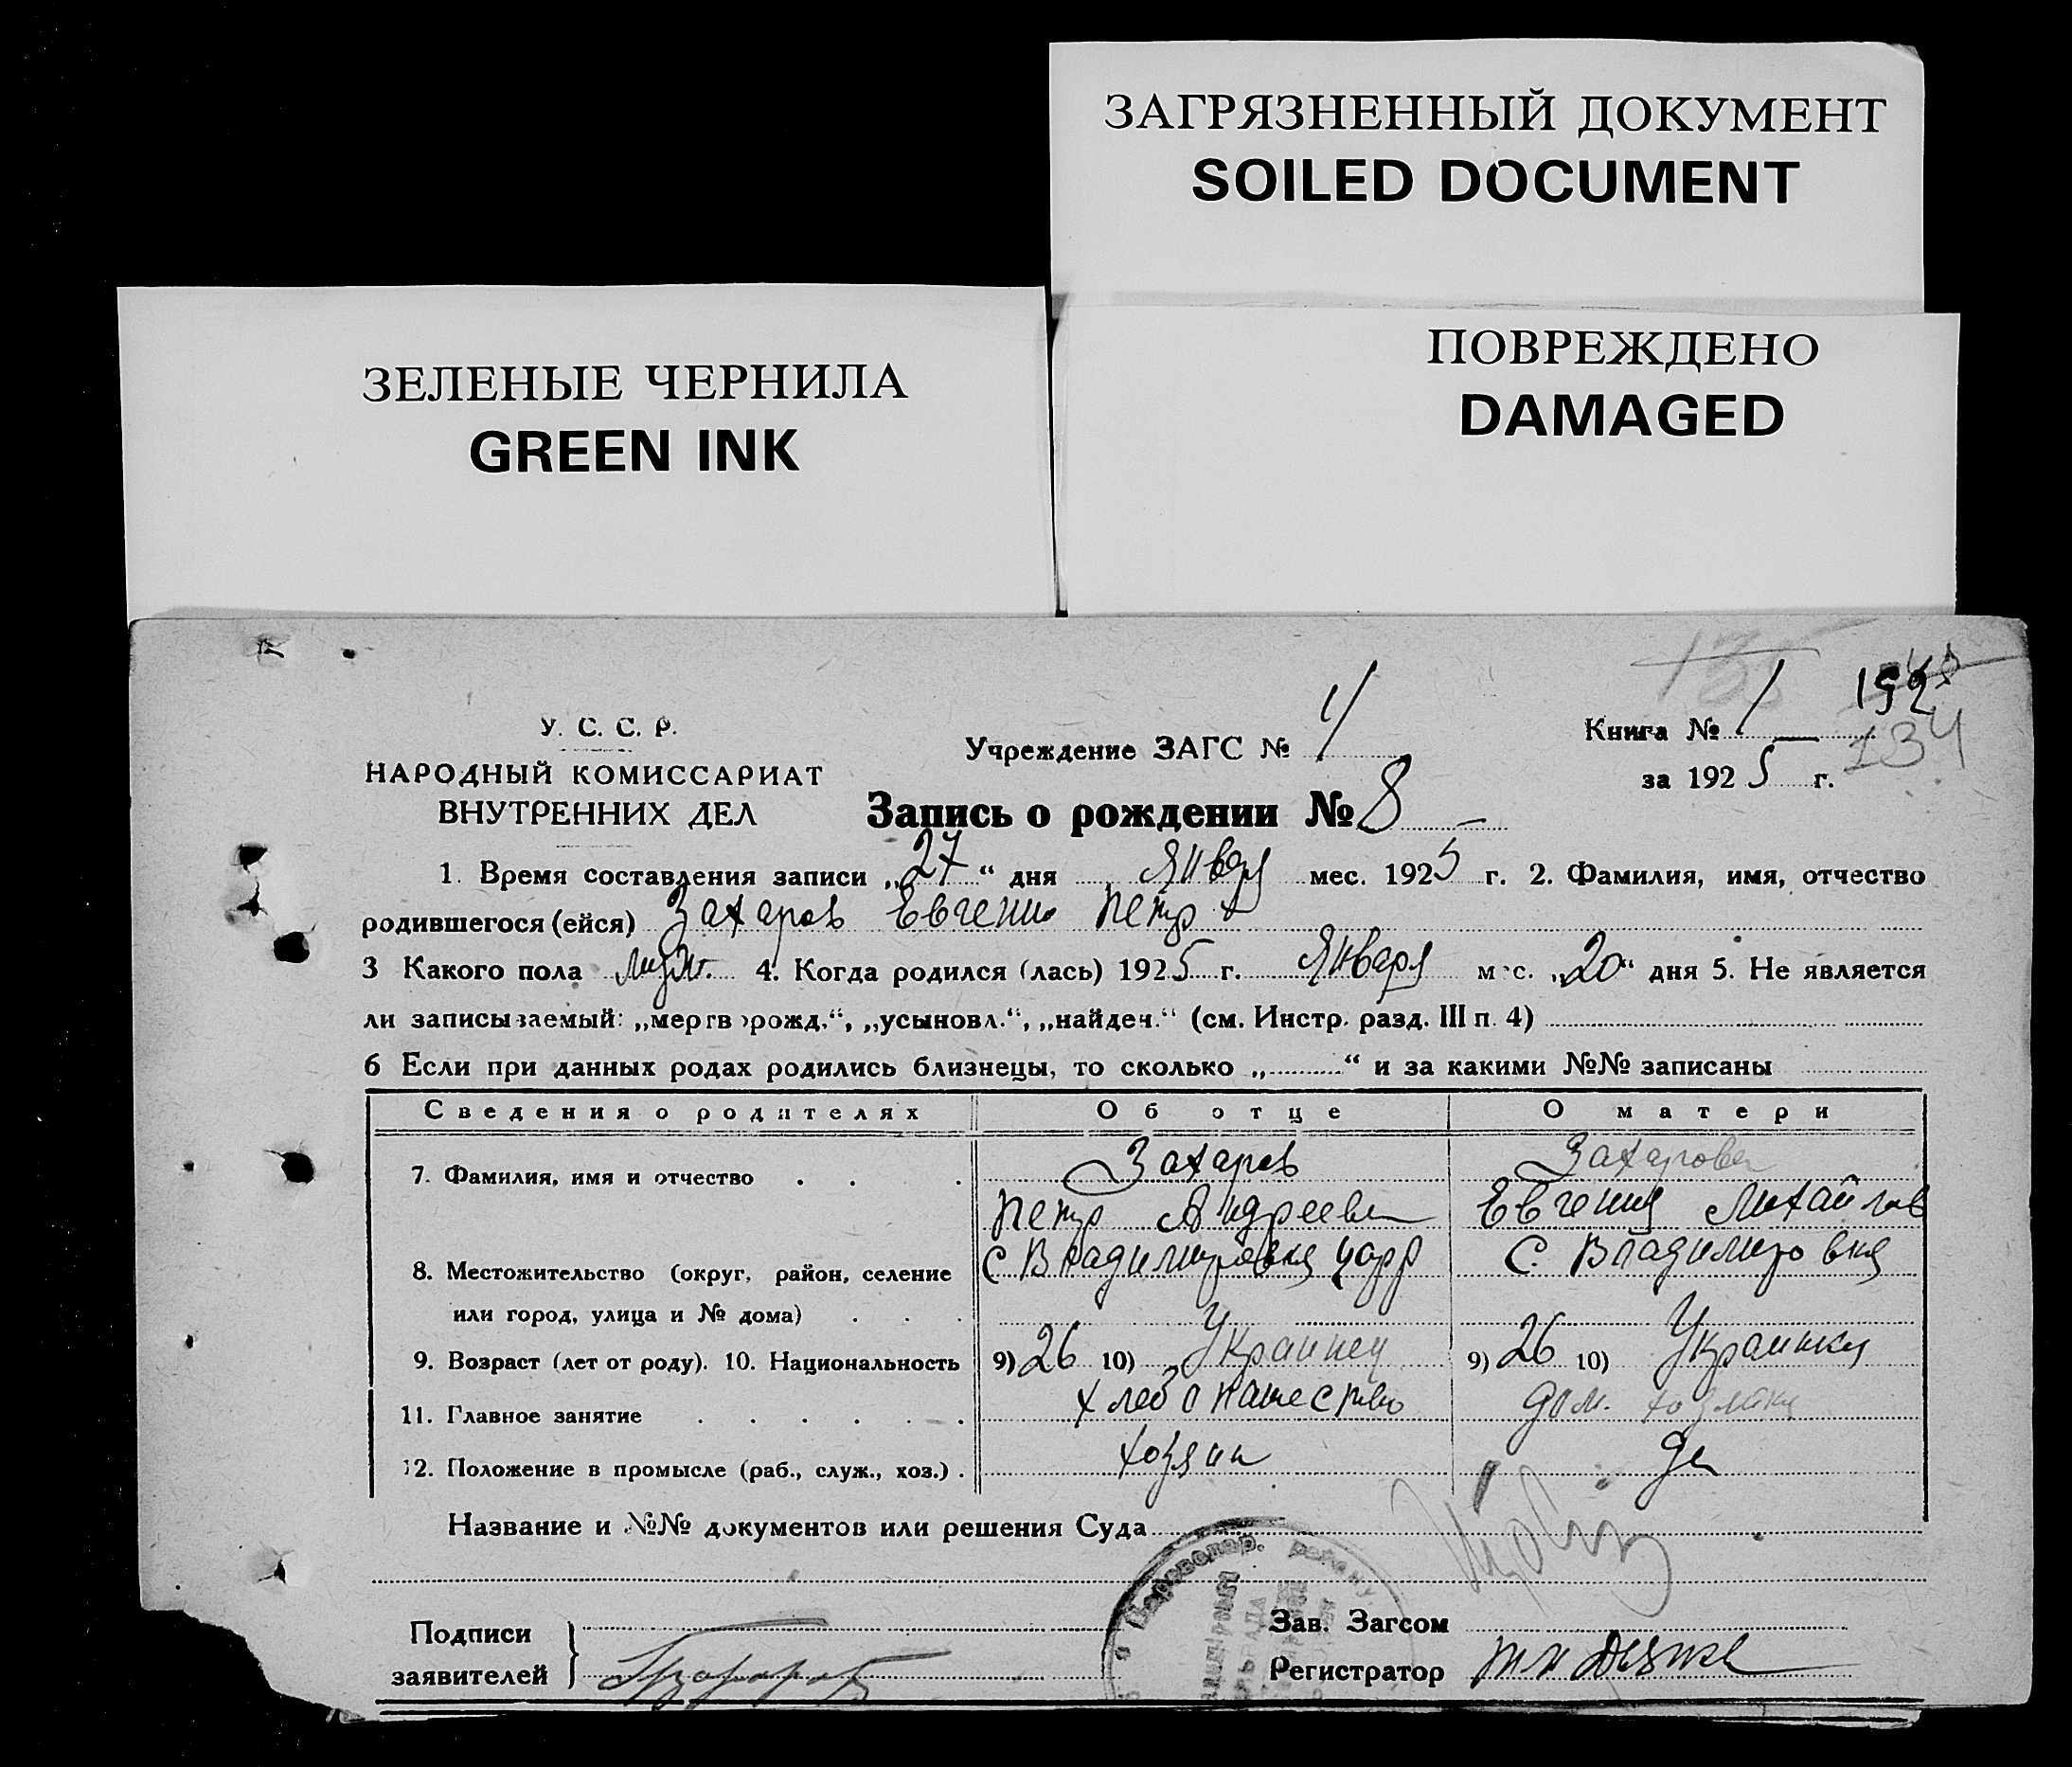 ЗАГРЯЗНЕННЫЙ ДОКУМЕНТ
SOILED DOCUMENT
ПОВРЕЖДЕНО
DAMAGED
ЗЕЛЕНЫЕ ЧЕРНИЛА
GREEN INK
У. С. С. Р.
НАРОДНЫЙ КОМИССАРИАТ
ВНУТРЕННИХ ДЕЛ
Учреждение ЗАГС №
Книга № 1
134
за 1925 г.
Запись о рождении № 8
1. Время составления записи „27“ дня Января мес. 1925 г. 2. Фамилия, имя, отчество
родившегося (ейся) Захаров Евгений Петр
3 Какого пола муж. 4. Когда родился (лась) 1925 г. Января мес. „20“ дня 5. Не является
ли записываемый: „мертворожд.“, „усыновл.“, „найден.“ (см. Инстр. разд. III п. 4)
6 Если при данных родах родились близнецы, то сколько „ “ и за какими №№ записаны
Сведения о родителях Об отце О матери
7. Фамилия, имя и отчество . . . Захаров Захарова
Петр Андреевич Евгения Михайлов
8. Местожительство (округ, район, селение с Владимировка С. Владимировка
или город, улица и № дома) . . .
9. Возраст (лет от роду). 10. Национальность 9) 26 10) Украинец 9) 26 10) Украинка
11. Главное занятие . . . . . . хлебопашество дом. хозяйка
12. Положение в промысле (раб., служ., хоз.) . хозяин
Название и №№ документов или решения Суда
Подписи
заявителей
Зав. Загсом
Регистратор